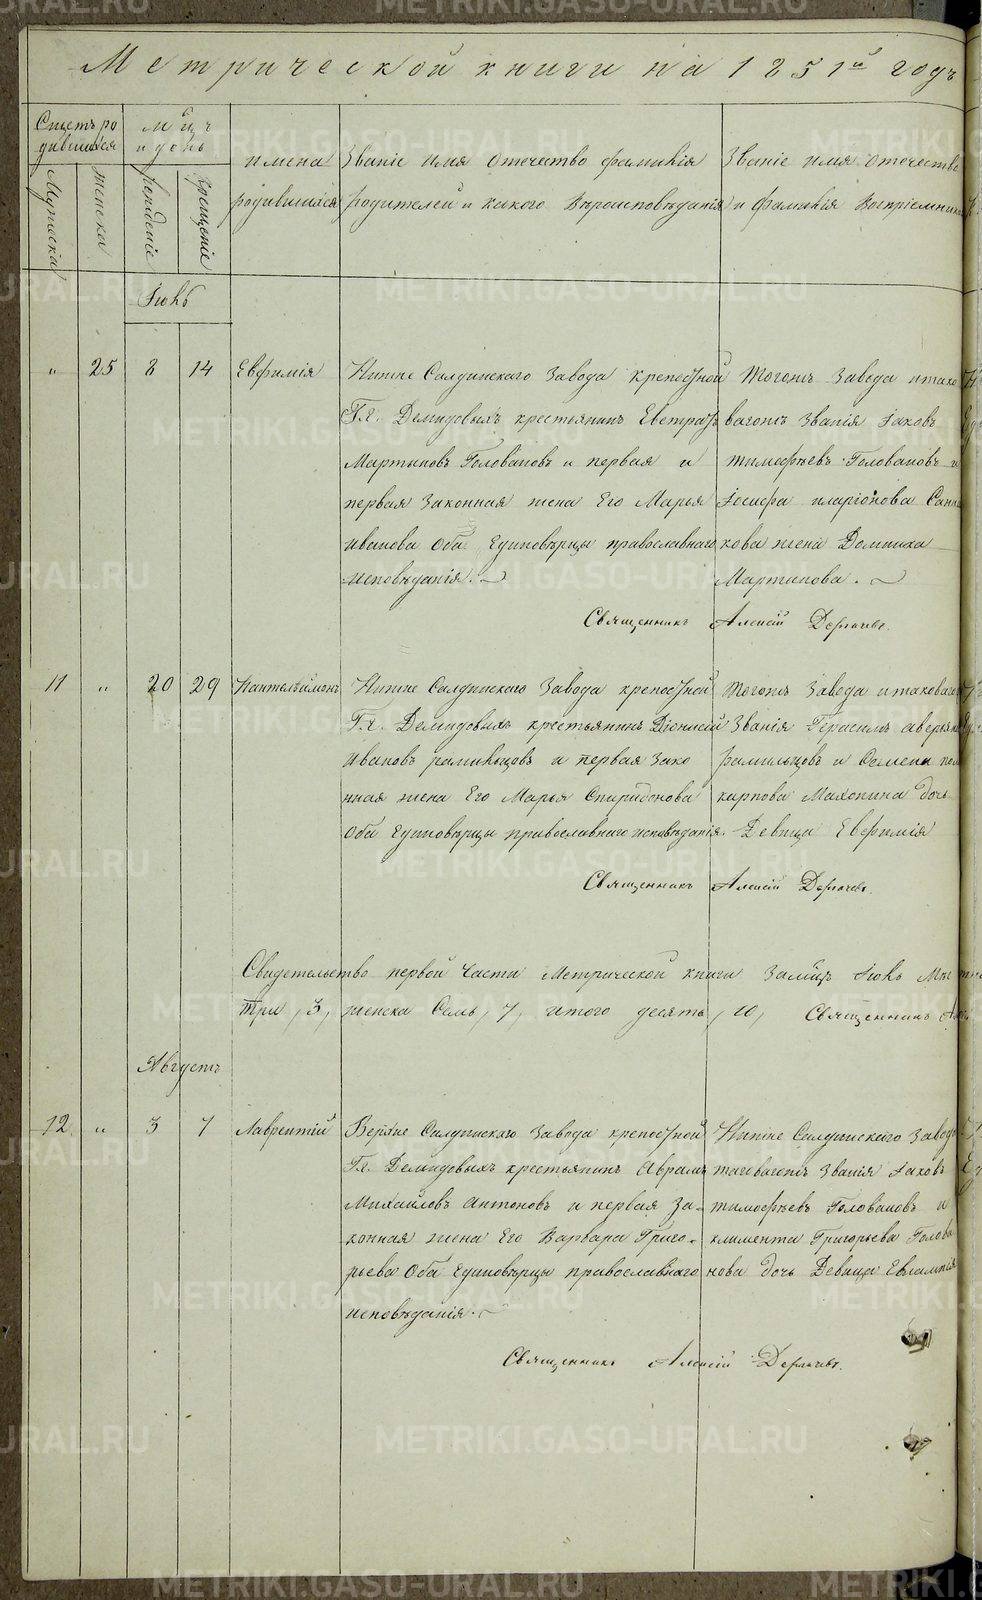 Метрической книги на 1851й годъ
Счетъ ро
дившихся
Мужеска
женска
М҃цъ
и день
рожденіе
крещеніе
имена
родившихся
Званіе имя отечество фамилія
родителей и какого Вѣроисповѣданія
Званіе имя отечество
и фамилія Воспріемник
Іюль
" 25 8 14 Евфимія
Нижне Салдинскаго Завода крепостной
Гг. Демидовыхъ крестьянинъ Евстраѳ
Мартыновъ Головановъ и первая и
первая Законная жена Его Марья
иванова Оба Единовѣрцы православнаго
исповѣданія.
Тогожъ Завода итако
вагожъ Званія Іаковъ
тимофѣевъ Головановъ и
Іосифа иларіонова Санни
кова жена Домника
Мартинова.
Священникъ Алексій Дерягевъ.
11 " 20 29 Пантелѣймонъ
Нижне Салдинскаго Завода крепостной
Гг. Демидовыхъ крестьянинъ Діонисій
ивановъ фамильцовъ и первая Зако
нная жена Его Марья Спиридонова
Оба Единовѣрцы православнаго исповѣданія.
Тогожъ Завода итаковаго
Званія Герасимъ аверьян
фамильцовъ и Семена пол
карпова Махонина дочь
Девица Евфимія
Священникъ Алексій Дерягевъ.
Свидетельство первой Части Метрической книги За м҃цъ Іюль
три, 3, женска Семь, 7, итого десять, 10, Священникъ
Августъ
12 " 3 7 Лаврентій
Верхне Салдинскаго Завода крепостной
Гг. Демидовыхъ крестьянинъ Аврамъ
Михайловъ Антоновъ и первая За-
конная жена Его Варвара Григо-
рьева Оба Единовѣрцы православнаго
исповѣданія.
Нижне Салдинскаго Завода
таковагожъ Званія Іаковъ
тимофѣевъ Головановъ и
климента Григорьева Голова
нова дочь Девица Евлампія
Священникъ Алексій Дерягевъ.
METRIKI.GASO-URAL.RU